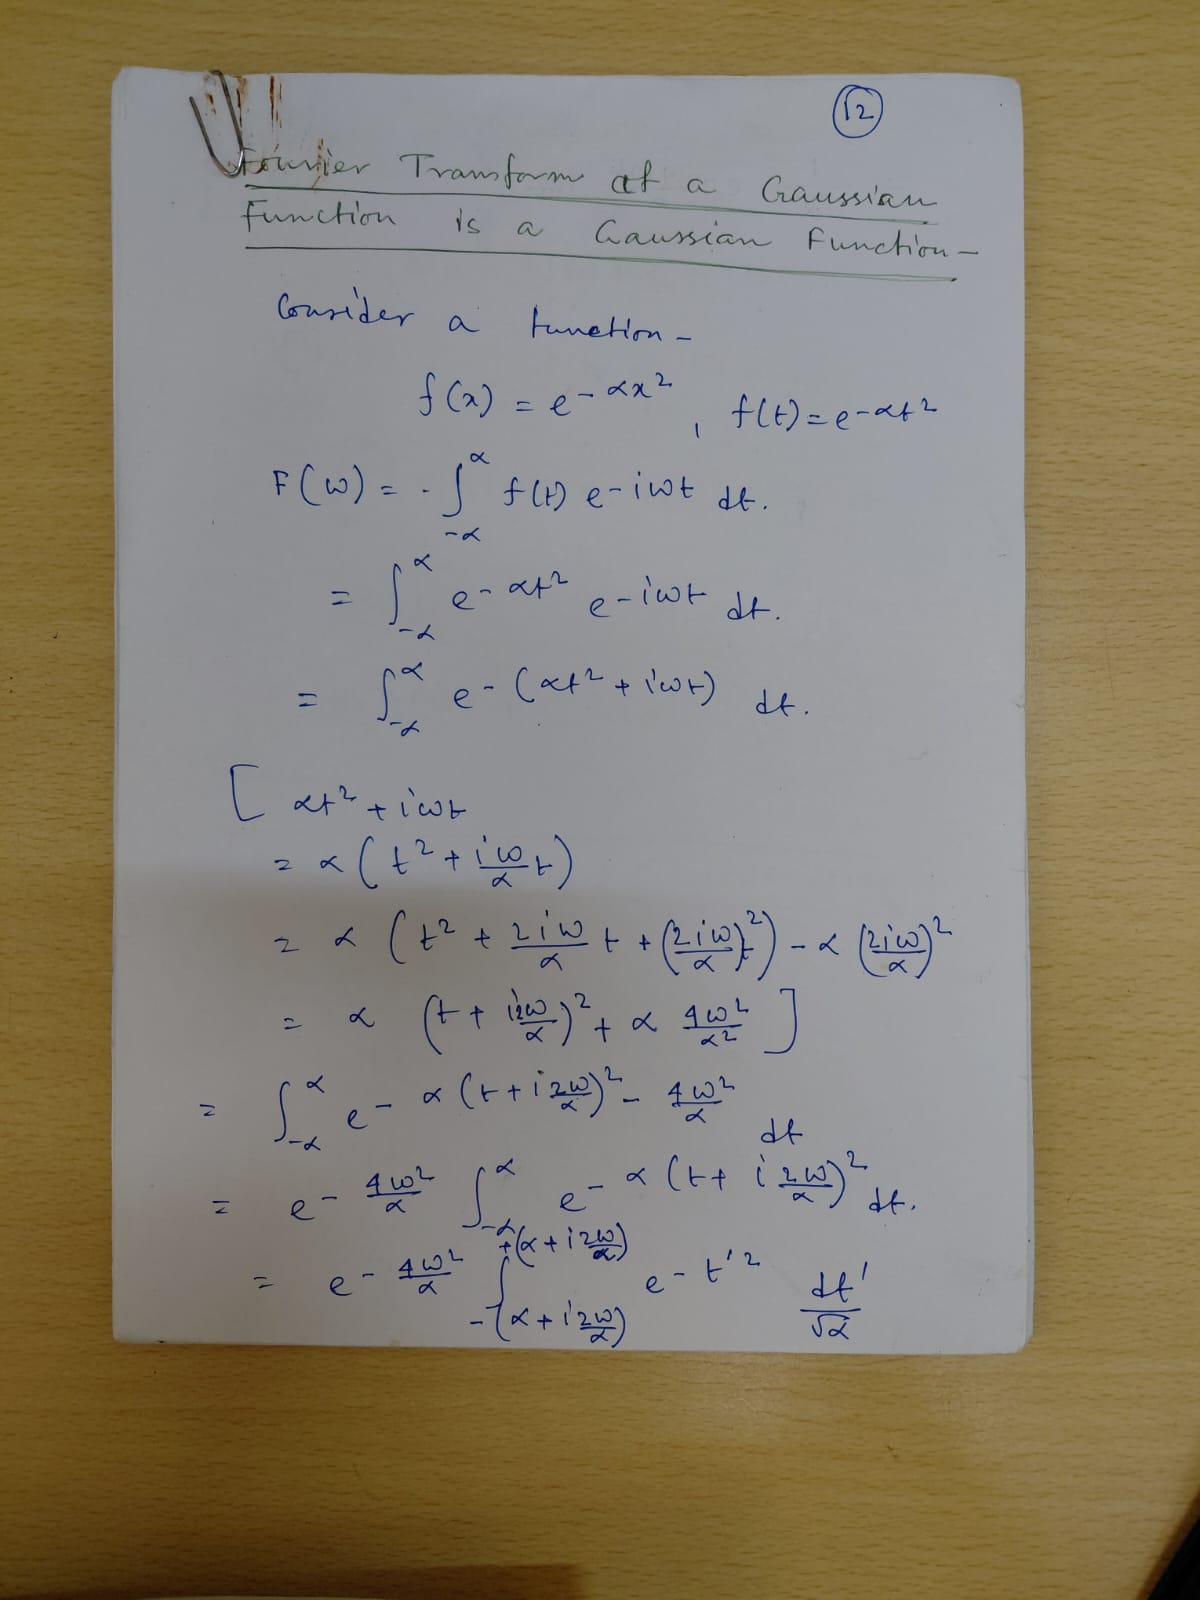 √2
Fourier Transform of a Gaussian
Function is a Gaussian Function -
Consider a function -
f(x) = e^{-αx²}, f(t) = e^{-αt²}
F(ω) = ∫_{-α}^{α} f(t) e^{-iωt} dt.
= ∫_{-α}^{α} e^{-αt²} e^{-iωt} dt.
= ∫_{-α}^{α} e^{-(αt² + iωt)} dt.
[ αt² + iωt
= α (t² + \frac{iω}{α} t)
= α (t² + \frac{2iω}{α} t + (\frac{2iω}{α})²) - α (\frac{2iω}{α})²
= α (t + \frac{i2ω}{α})² + α \frac{4ω²}{α²} ]
= ∫_{-α}^{α} e^{-α(t + i\frac{2ω}{α})² - \frac{4ω²}{α}} dt
= e^{-\frac{4ω²}{α}} ∫_{-α}^{α} e^{-α(t + i\frac{2ω}{α})²} dt.
= e^{-\frac{4ω²}{α}} ∫_{-(α + i\frac{2ω}{α})}^{+(α + i\frac{2ω}{α})} e^{-t'²} \frac{dt'}{√α}